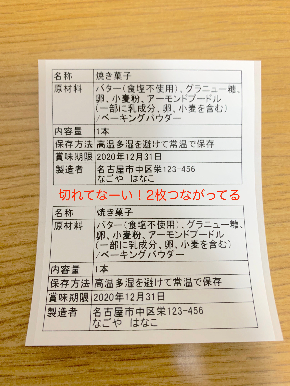 名称 焼き菓子
原材料 バター(食塩不使用)、グラニュー糖、
卵、小麦粉、アーモンドプードル
(一部に乳成分、卵、小麦を含む)
/ベーキングパウダー
内容量 1本
保存方法 高温多湿を避けて常温で保存
賞味期限 2020年12月31日
製造者 名古屋市中区栄123-456
なごや はなこ
切れてなーい！2枚つながってる
名称 焼き菓子
原材料 バター(食塩不使用)、グラニュー糖、
卵、小麦粉、アーモンドプードル
(一部に乳成分、卵、小麦を含む)
/ベーキングパウダー
内容量 1本
保存方法 高温多湿を避けて常温で保存
賞味期限 2020年12月31日
製造者 名古屋市中区栄123-456
なごや はなこ